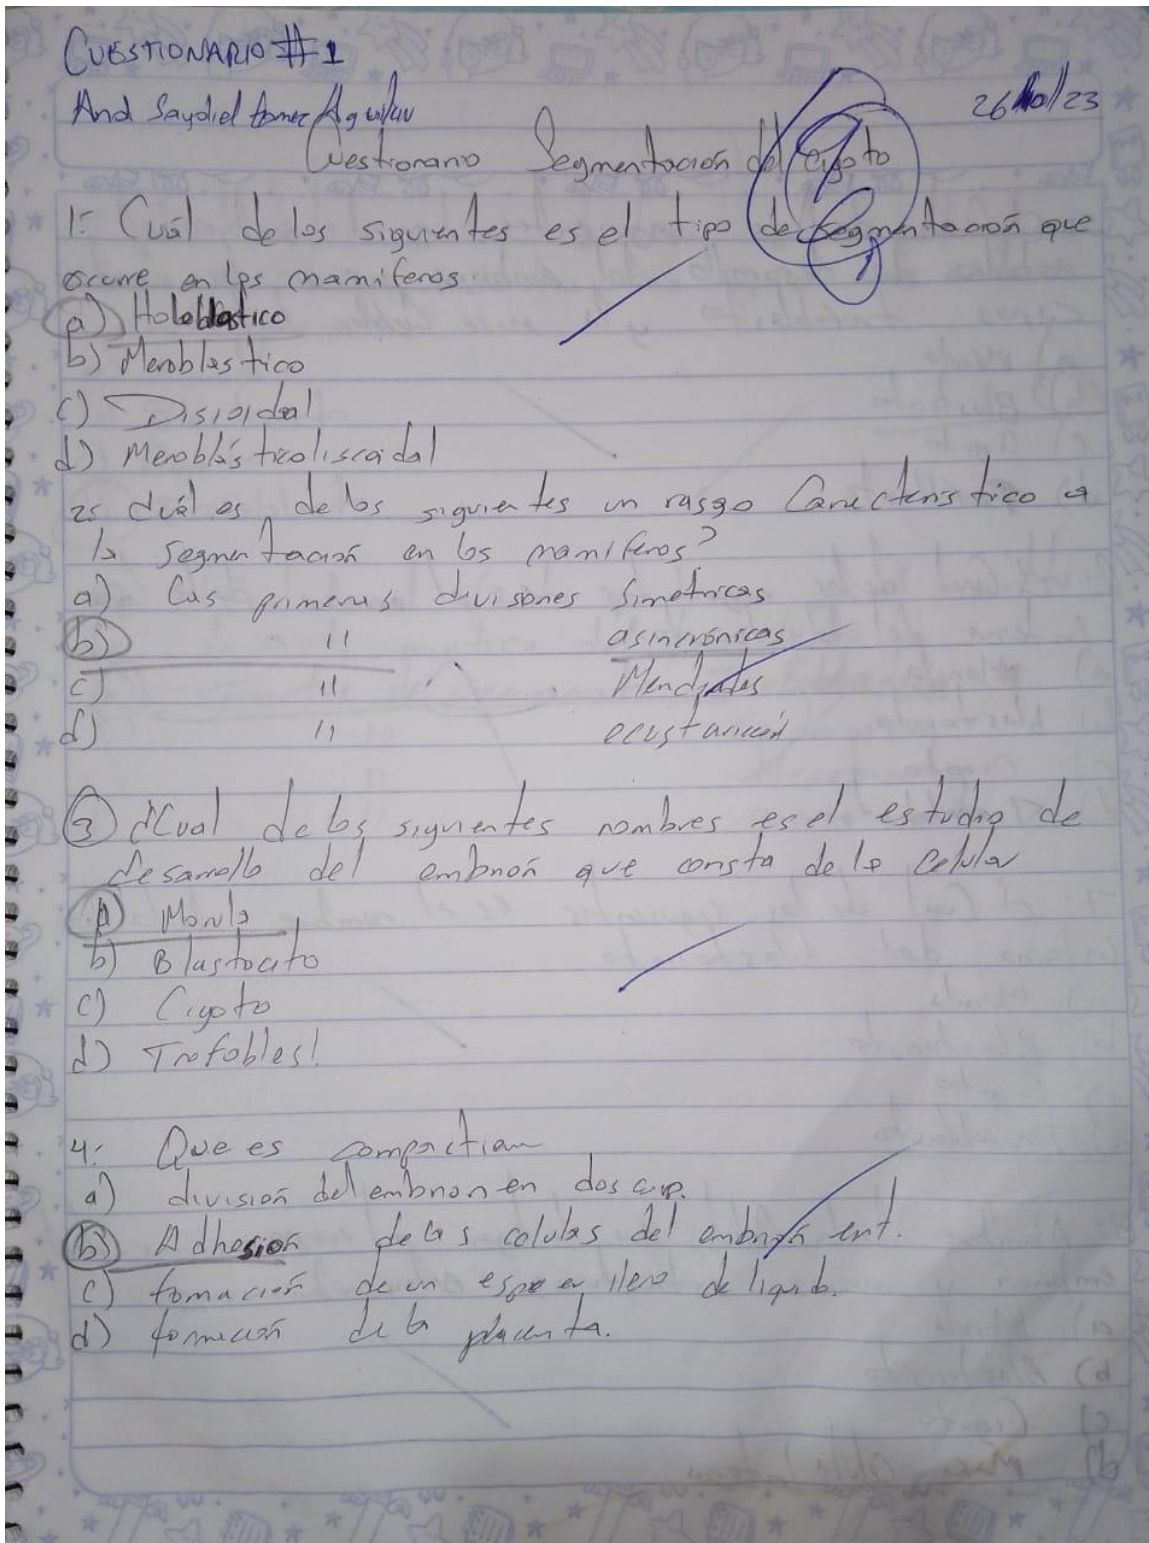 CUESTIONARIO #1
And Saydiel Aguilar
26/23
Cuestionario Segmentación del Cigoto
1: Cuál de los siguientes es el tipo de segmentación que
ocurre en los mamiferos.
a) Holoblastico
b) Meroblastico
c) Disioidal
d) Meroblásticoliscoidal
2: Cuál es de los siguientes un rasgo Caracteristico a
la segmentación en los mamiferos?
a) Las primeras divisones Simetricas
b) 11 asincrónicas
c) 11
d) 11
3) ¿Cual de los siguientes nombres es el estudio de
desarrollo del embrión que consta de la Celula
a) Morula
b) Blastocito
c) Cigoto
d) Trofobles!
4: Que es compaction
a) división del embrion en dos
b) Adhesión de las celulas del embrión ent.
c) formación de un lleno de liquido.
d) formación de la placenta.